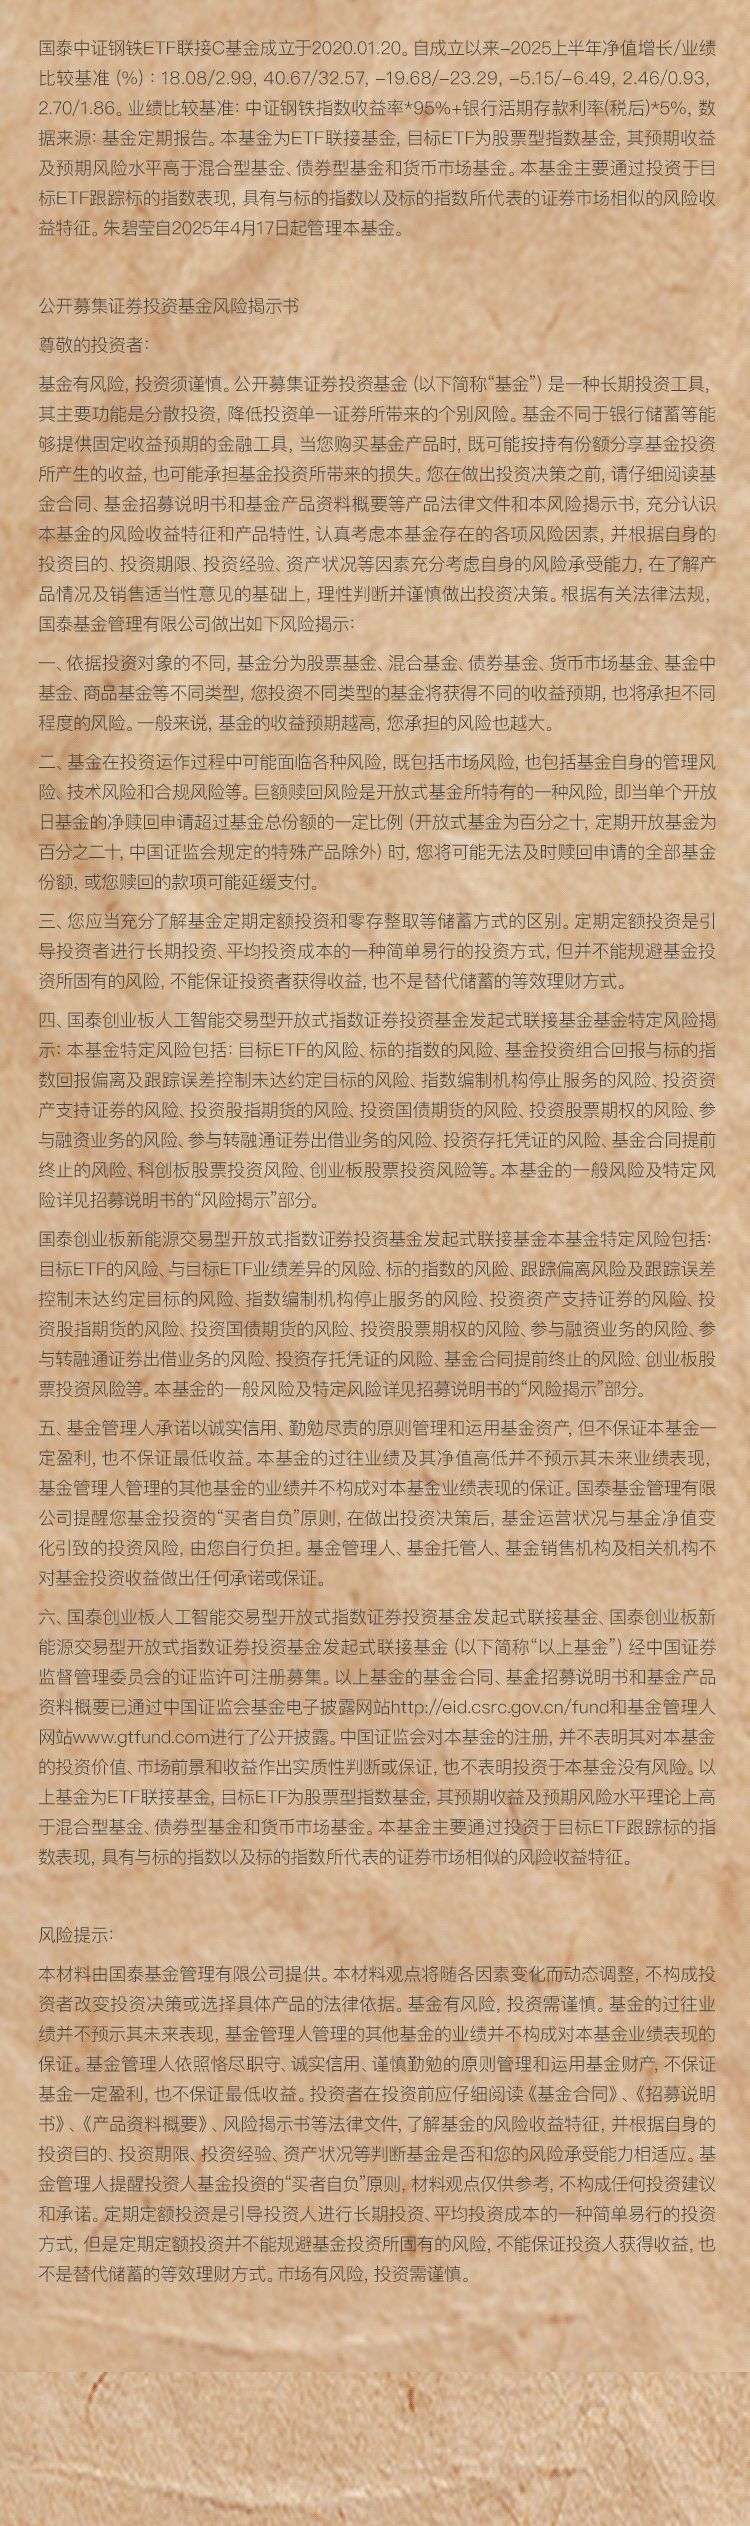 国泰中证钢铁ETF联接C基金成立于2020.01.20。自成立以来-2025上半年净值增长/业绩
比较基准（%）：18.08/2.99, 40.67/32.57, -19.68/-23.29, -5.15/-6.49, 2.46/0.93,
2.70/1.86。业绩比较基准：中证钢铁指数收益率*95%+银行活期存款利率(税后)*5%，数
据来源：基金定期报告。本基金为ETF联接基金，目标ETF为股票型指数基金，其预期收益
及预期风险水平高于混合型基金、债券型基金和货币市场基金。本基金主要通过投资于目
标ETF跟踪标的指数表现，具有与标的指数以及标的指数所代表的证券市场相似的风险收
益特征。朱碧莹自2025年4月17日起管理本基金。
公开募集证券投资基金风险揭示书
尊敬的投资者：
基金有风险，投资须谨慎。公开募集证券投资基金（以下简称“基金”）是一种长期投资工具，
其主要功能是分散投资，降低投资单一证券所带来的个别风险。基金不同于银行储蓄等能
够提供固定收益预期的金融工具，当您购买基金产品时，既可能按持有份额分享基金投资
所产生的收益，也可能承担基金投资所带来的损失。您在做出投资决策之前，请仔细阅读基
金合同、基金招募说明书和基金产品资料概要等产品法律文件和本风险揭示书，充分认识
本基金的风险收益特征和产品特性，认真考虑本基金存在的各项风险因素，并根据自身的
投资目的、投资期限、投资经验、资产状况等因素充分考虑自身的风险承受能力，在了解产
品情况及销售适当性意见的基础上，理性判断并谨慎做出投资决策。根据有关法律法规，
国泰基金管理有限公司做出如下风险揭示：
一、依据投资对象的不同，基金分为股票基金、混合基金、债券基金、货币市场基金、基金中
基金、商品基金等不同类型，您投资不同类型的基金将获得不同的收益预期，也将承担不同
程度的风险。一般来说，基金的收益预期越高，您承担的风险也越大。
二、基金在投资运作过程中可能面临各种风险，既包括市场风险，也包括基金自身的管理风
险、技术风险和合规风险等。巨额赎回风险是开放式基金所特有的一种风险，即当单个开放
日基金的净赎回申请超过基金总份额的一定比例（开放式基金为百分之十，定期开放基金为
百分之二十，中国证监会规定的特殊产品除外）时，您将可能无法及时赎回申请的全部基金
份额，或您赎回的款项可能延缓支付。
三、您应当充分了解基金定期定额投资和零存整取等储蓄方式的区别。定期定额投资是引
导投资者进行长期投资、平均投资成本的一种简单易行的投资方式，但并不能规避基金投
资所固有的风险，不能保证投资者获得收益，也不是替代储蓄的等效理财方式。
四、国泰创业板人工智能交易型开放式指数证券投资基金发起式联接基金基金特定风险揭
示：本基金特定风险包括：目标ETF的风险、标的指数的风险、基金投资组合回报与标的指
数回报偏离及跟踪误差控制未达约定目标的风险、指数编制机构停止服务的风险、投资资
产支持证券的风险、投资股指期货的风险、投资国债期货的风险、投资股票期权的风险、参
与融资业务的风险、参与转融通证券出借业务的风险、投资存托凭证的风险、基金合同提前
终止的风险、科创板股票投资风险、创业板股票投资风险等。本基金的一般风险及特定风
险详见招募说明书的“风险揭示”部分。
国泰创业板新能源交易型开放式指数证券投资基金发起式联接基金本基金特定风险包括：
目标ETF的风险、与目标ETF业绩差异的风险、标的指数的风险、跟踪偏离风险及跟踪误差
控制未达约定目标的风险、指数编制机构停止服务的风险、投资资产支持证券的风险、投
资股指期货的风险、投资国债期货的风险、投资股票期权的风险、参与融资业务的风险、参
与转融通证券出借业务的风险、投资存托凭证的风险、基金合同提前终止的风险、创业板股
票投资风险等。本基金的一般风险及特定风险详见招募说明书的“风险揭示”部分。
五、基金管理人承诺以诚实信用、勤勉尽责的原则管理和运用基金资产，但不保证本基金一
定盈利，也不保证最低收益。本基金的过往业绩及其净值高低并不预示其未来业绩表现，
基金管理人管理的其他基金的业绩并不构成对本基金业绩表现的保证。国泰基金管理有限
公司提醒您基金投资的“买者自负”原则，在做出投资决策后，基金运营状况与基金净值变
化引致的投资风险，由您自行负担。基金管理人、基金托管人、基金销售机构及相关机构不
对基金投资收益做出任何承诺或保证。
六、国泰创业板人工智能交易型开放式指数证券投资基金发起式联接基金、国泰创业板新
能源交易型开放式指数证券投资基金发起式联接基金（以下简称“以上基金”）经中国证券
监督管理委员会的证监许可注册募集。以上基金的基金合同、基金招募说明书和基金产品
资料概要已通过中国证监会基金电子披露网站http://eid.csrc.gov.cn/fund和基金管理人
网站www.gtfund.com进行了公开披露。中国证监会对本基金的注册，并不表明其对本基金
的投资价值、市场前景和收益作出实质性判断或保证，也不表明投资于本基金没有风险。以
上基金为ETF联接基金，目标ETF为股票型指数基金，其预期收益及预期风险水平理论上高
于混合型基金、债券型基金和货币市场基金。本基金主要通过投资于目标ETF跟踪标的指
数表现，具有与标的指数以及标的指数所代表的证券市场相似的风险收益特征。
风险提示：
本材料由国泰基金管理有限公司提供。本材料观点将随各因素变化而动态调整，不构成投
资者改变投资决策或选择具体产品的法律依据。基金有风险，投资需谨慎。基金的过往业
绩并不预示其未来表现，基金管理人管理的其他基金的业绩并不构成对本基金业绩表现的
保证。基金管理人依照恪尽职守、诚实信用、谨慎勤勉的原则管理和运用基金财产，不保证
基金一定盈利，也不保证最低收益。投资者在投资前应仔细阅读《基金合同》、《招募说明
书》、《产品资料概要》、风险揭示书等法律文件，了解基金的风险收益特征，并根据自身的
投资目的、投资期限、投资经验、资产状况等判断基金是否和您的风险承受能力相适应。基
金管理人提醒投资人基金投资的“买者自负”原则，材料观点仅供参考，不构成任何投资建议
和承诺。定期定额投资是引导投资人进行长期投资、平均投资成本的一种简单易行的投资
方式，但是定期定额投资并不能规避基金投资所固有的风险，不能保证投资人获得收益，也
不是替代储蓄的等效理财方式。市场有风险，投资需谨慎。